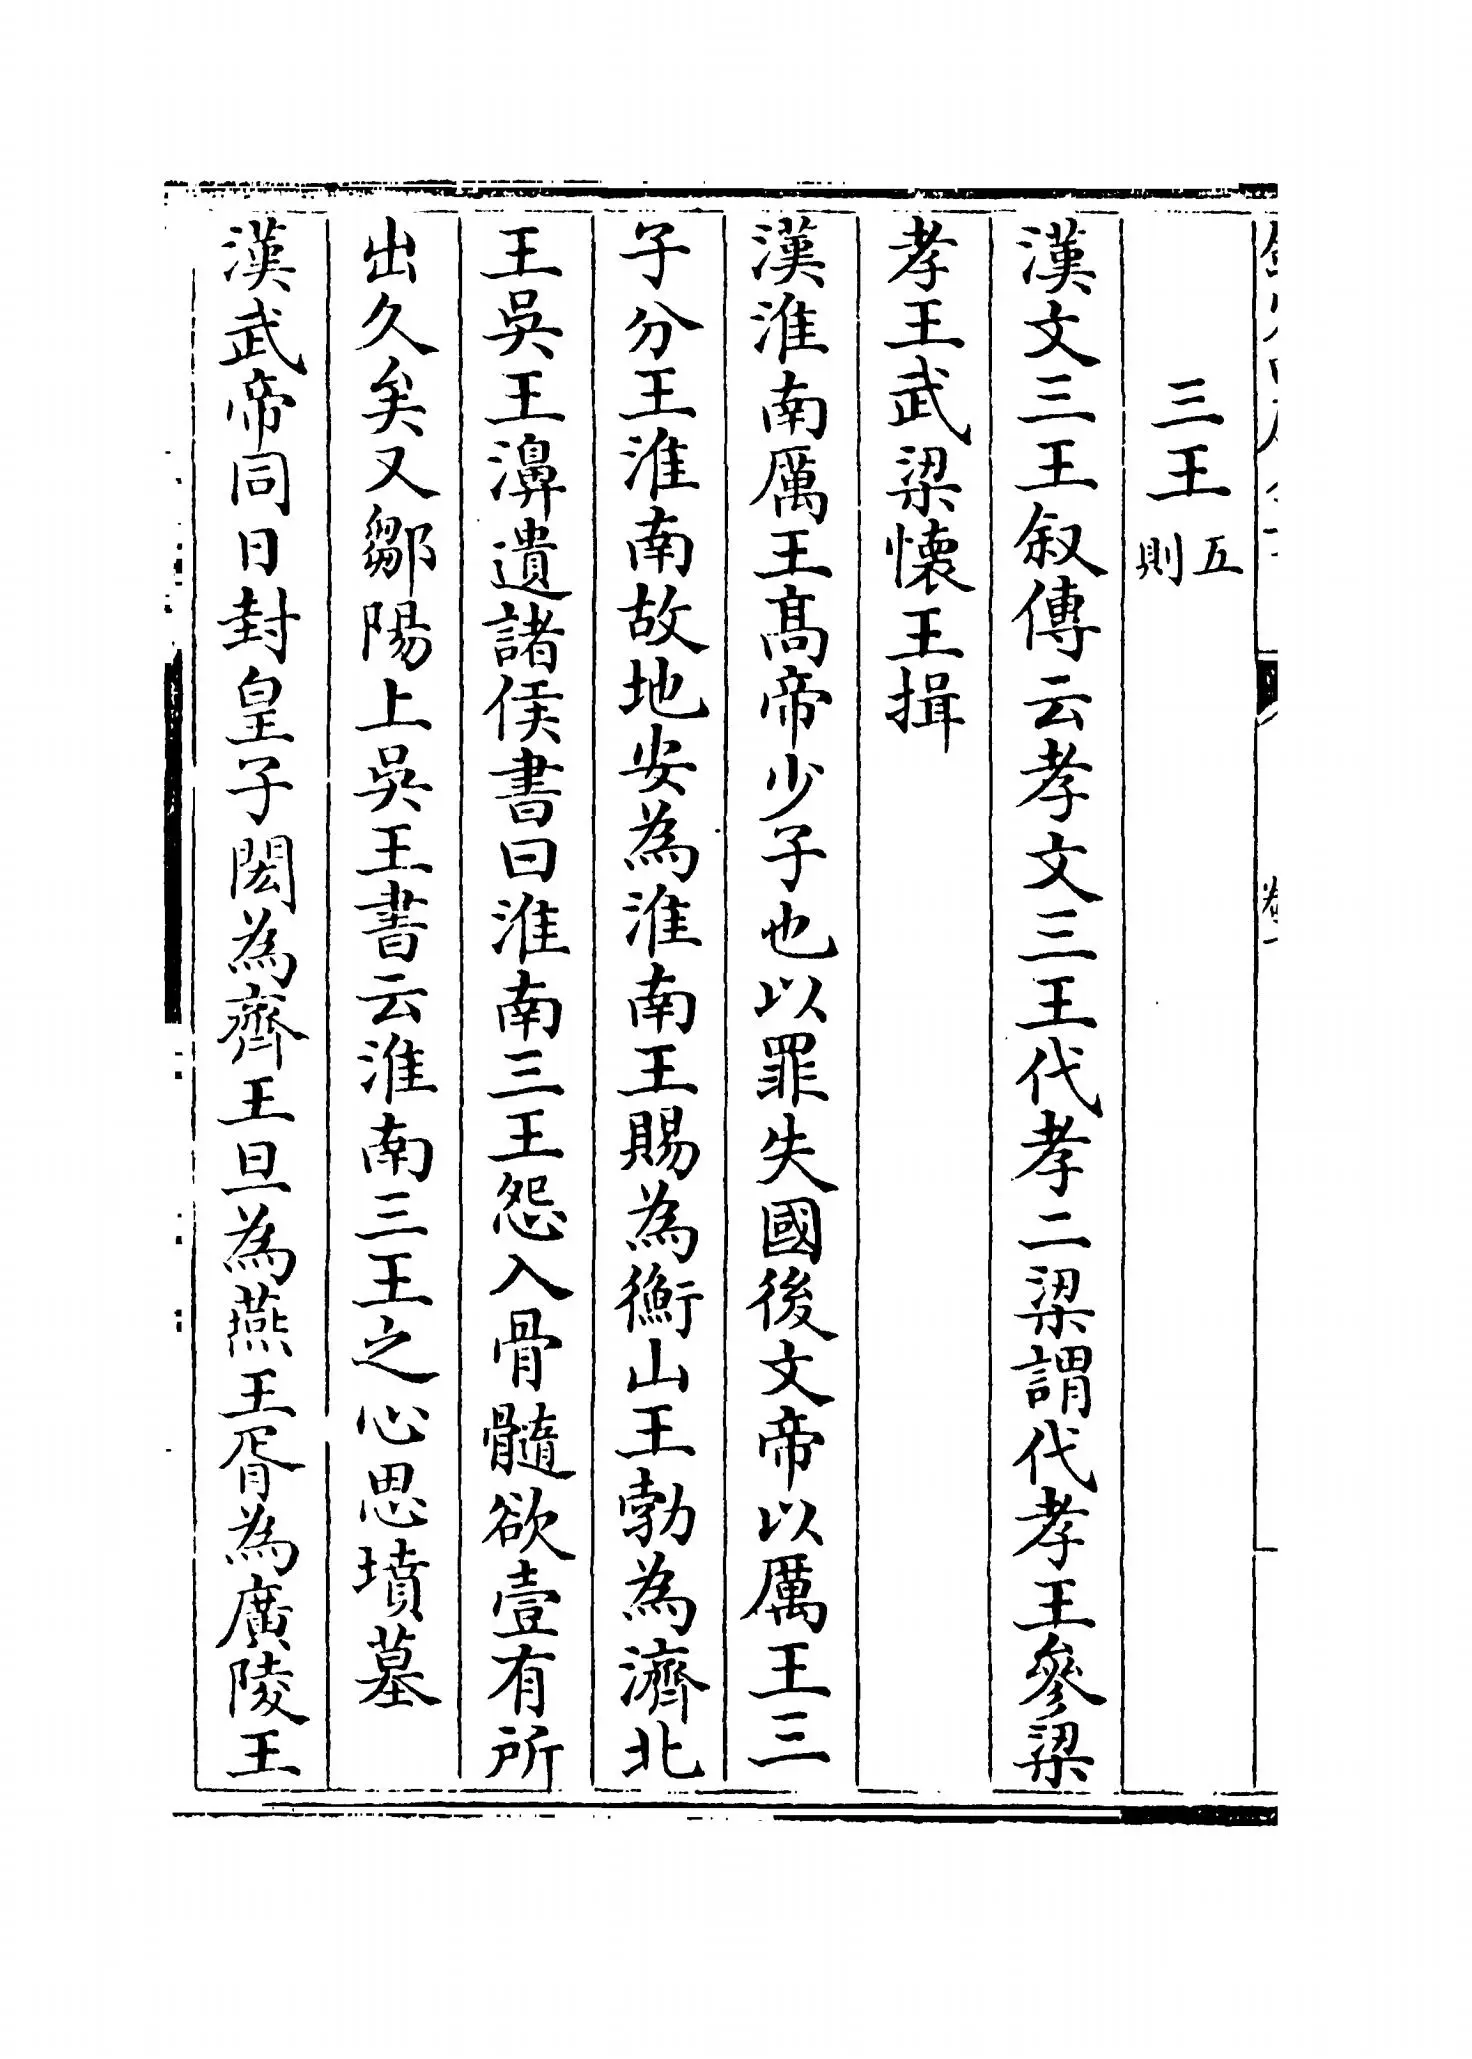 三王五則
漢文三王叙傳云孝文三王代孝二梁謂代孝王參梁
孝王武梁懷王揖
漢淮南厲王髙帝少子也以罪失國後文帝以厲王三
子分王淮南故地安為淮南王賜為衡山王勃為濟北
王吳王濞遺諸侯書曰淮南三王怨入骨髓欲壹有所
出久矣又鄒陽上吳王書云淮南三王之心思墳墓
漢武帝同日封皇子閎為齊王旦為燕王胥為廣陵王